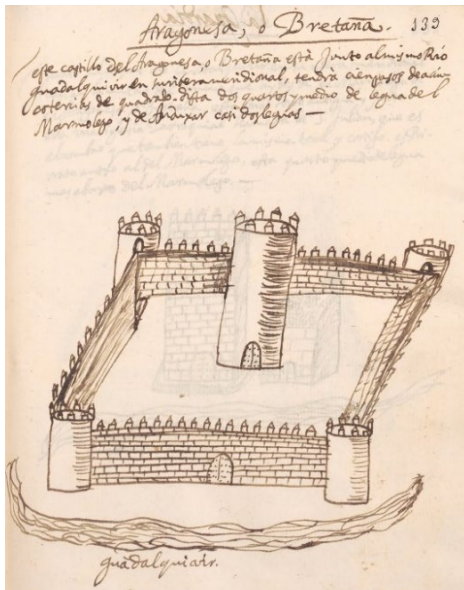 Aragonesa, o Bretaña. 139
este castillo del Aragonesa, o Bretaña està Junto al mismo Rio
guadalquivir en su ritera meridional, tendra cien pasos de
de quadro. dista dos quartos y medio de legua del
Marmolejo. y de Anduxar casi dos leguas —
guadalquivir.